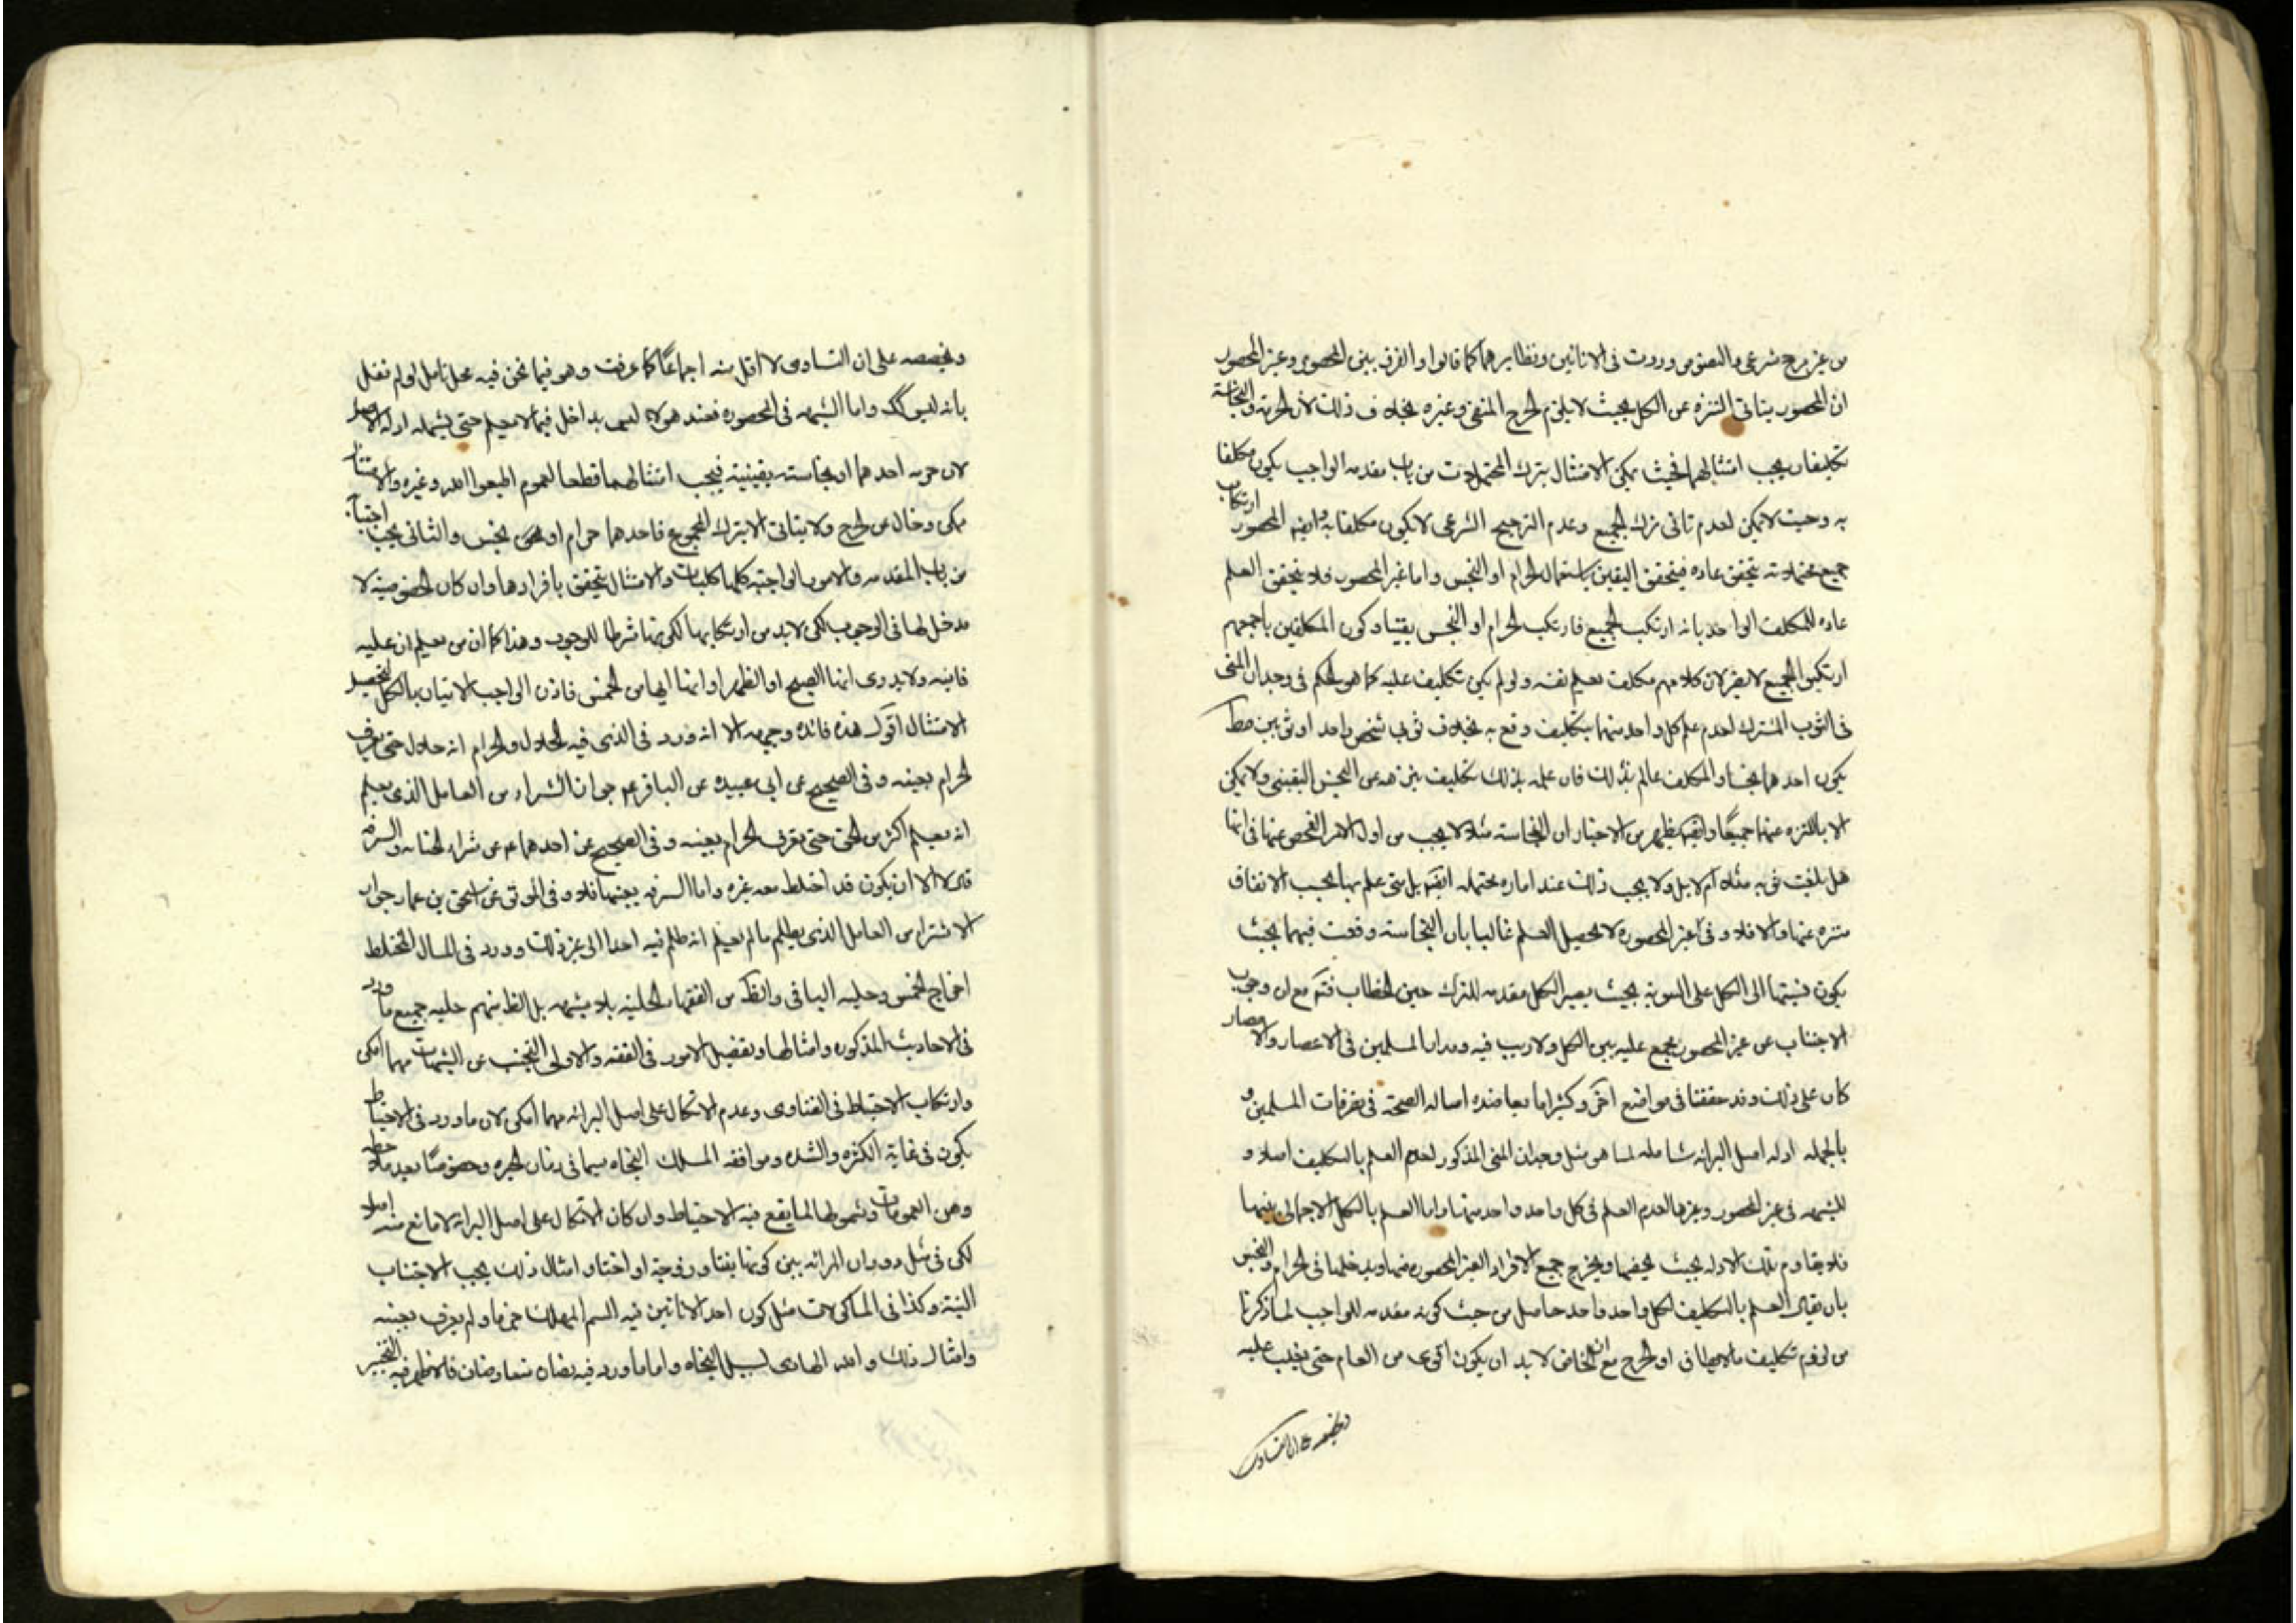 من غير مرجح شرعي والنصوص وردت في الاناثين ونظايرهما كما قالوا والفرق بين المحصور وغير المحصور
ان المحصور يتاتى التنزه عن الكل بحيث لا يلزم الحرج المنفي وغيره بخلاف ذلك لان الحرمة والنجاسة
تكليفان يجب امتثالهما فحيث يمكن الامتثال بترك المحتملات من باب مقدمه الواجب يكون مكلفا
به وحيث لا يمكن لعدم تاتى ترك الجميع وعدم الترجيح الشرعي لا يكون مكلفا به وايضا المحصور ارتكاب
جميع محتملاته يتحقق عاده فيتحقق اليقين باستعمال الحرام او النجس واما غير المحصور فلا يتحقق العلم
عاده للمكلف الواحد بانه ارتكب الجميع فارتكب الحرام او النجس يقينا وكون المكلفين باجمعهم
ارتكبوا الجميع لا يضر لان كلا منهم مكلف بعلم نفسه ولو لم يكن تكليف عليه كما هو الحكم في وجدان المني
في الثوب المشترك لعدم علم كل واحد منهما بتكليف وقع به بخلاف ثوبي شخص واحد او ثوبين فقط
يكون احدهما نجسا والمكلف عالم بذلك فان علمه بذلك تكليف بتنزهه عن النجس اليقيني ولا يمكن
الا بالتنزه عنهما جميعًا وايضا يظهر من الاخبار ان النجاسة مثلا لا يجب من اول الامر الفحص عنها في انها
هل بلغت ثوبه مثلا ام لا بل ولا يجب ذلك عند اماره محتمله ايضا بل متى علم بها بحسب الاتفاق
متنزه عنها والا فلا وفي غير المحصوره لا يحصل العلم غالبا بان النجاسة وقعت فيهما بحيث
يكون نسبتها الى الكل على السوية بحيث يصير الكل مقدمه للترك حين الخطاب فتم مع ان وجوب
الاجتناب عن غير المحصور مجمع عليه بين الكل ولا ريب فيه ومدار المسلمين في الاعصار والامصار
كان على ذلك وقد حققنا في مواضع اخر وكثيرا ما يعاضده اصالة الصحة في تصرفات المسلمين و
بالجمله ادله اصل البرائه شامله لما هو مثل وجدان المني المذكور لعدم العلم بالتكليف اصلا و
للشبهه في غير المحصور وغيرها لعدم العلم في كل واحد واحد منها واما العلم بالتكل الاجمالي بينها
فلا يقاوم تلك الادله بحيث يخصصها ويخرج جميع الافراد الغير المحصوره منها ويدخلها في الحرام والنجس
بان يقال العلم بالتكليف لكل واحد واحد حاصل من حيث كونه مقدمه للواجب لما ذكرنا
من لزوم تكليف ما لا يطاق او الحرج مع ان الخاص لا بد ان يكون اقوى من العام حتى يغلب عليه
ويخصصه على ان التساوى
ويخصصه على ان التساوى لا اقل منه اجماعًا كما عرفت وهو فيما نحن فيه محل تامل لو لم نقل
بانه ليس كك واما الشبهه في المحصوره فعند هؤلاء ليس بداخل فيما لا يعلم حتى يشمله ادله الاصل
لان حرمه احدهما او نجاسته يقينية فيجب امتثالهما قطعا لعموم اطيعوا الله وغيره والامتثال
ممكن وخال عن الحرج ولا يتاتى الا بترك المجموع فاحدهما حرام او نجس والثاني يجب اجتنابه
من باب المقدمه والامور الواجبه كلها كليات والامتثال يتحقق بافرادها وان كان الخصوصيه لا
مدخل لها في الوجوب لكن لا بد من ارتكابها لكونها شرطا للوجوب وهذا كما ان من يعلم ان عليه
فايته ولا يدرى انها الصبح او الظهر او انها ايها من الخمس فاذن الواجب الاتيان بالكل لتحصيل
الامتثال اقول هذه فائده وجيهه الا انه ورد في الذي فيه الحلال والحرام انه حلال حتى تعرف
الحرام بعينه وفي الصحيح عن ابي عبيده عن الباقر ع جواز الشراء من العامل الذي يعلم
انه يعلم اكثر من الحق حتى يعرف الحرام بعينه وفي الصحيح عن احدهما ع عن شراء الخيانه والسرقه
قال لا الا ان يكون قد اختلط معه غيره واما السرقه بعينها فلا وفي الموثق عن اسحق بن عمار جواز
الاشتراء من العامل الذي يظلم ما لم يعلم انه ظلم فيه احدا الى غير ذلك وورد في المال المختلط
اخراج الخمس وحليه الباقي والظ من الفقهاء الحليه بلا شبهه بل الظ منهم حليه جميع ما ورد
في الاحاديث المذكوره وامثالها وتفصيل الامور في الفقه والاولى التجنب عن الشبهات مهما امكن
وارتكاب الاحتياط في الفتاوى وعدم الاتكال على اصل البرائه مهما امكن لان ما ورد في الاحتياط
يكون في غاية الكثره والشده وموافقه المسلك النجاه سيما في زمان الحيره وخصوصًا بعد ملاحظه
وهن العمومات وشمولها لما يقع فيه الاحتياط وان كان الاتكال على اصل البرائه لا مانع منه اصلا
لكن في مثل دوران المرائه بين كونها بنتا وزوجة او اختا وامثال ذلك يجب الاجتناب
البتة وكذا في الماكولات مثل كون احد الاناثين فيه السم المهلك جزما ولم يعرف بعينه
وامثال ذلك والله الهادى لسبيل النجاه واما ما ورد فيه نصان متعارضان فالاظهر فيه التخيير